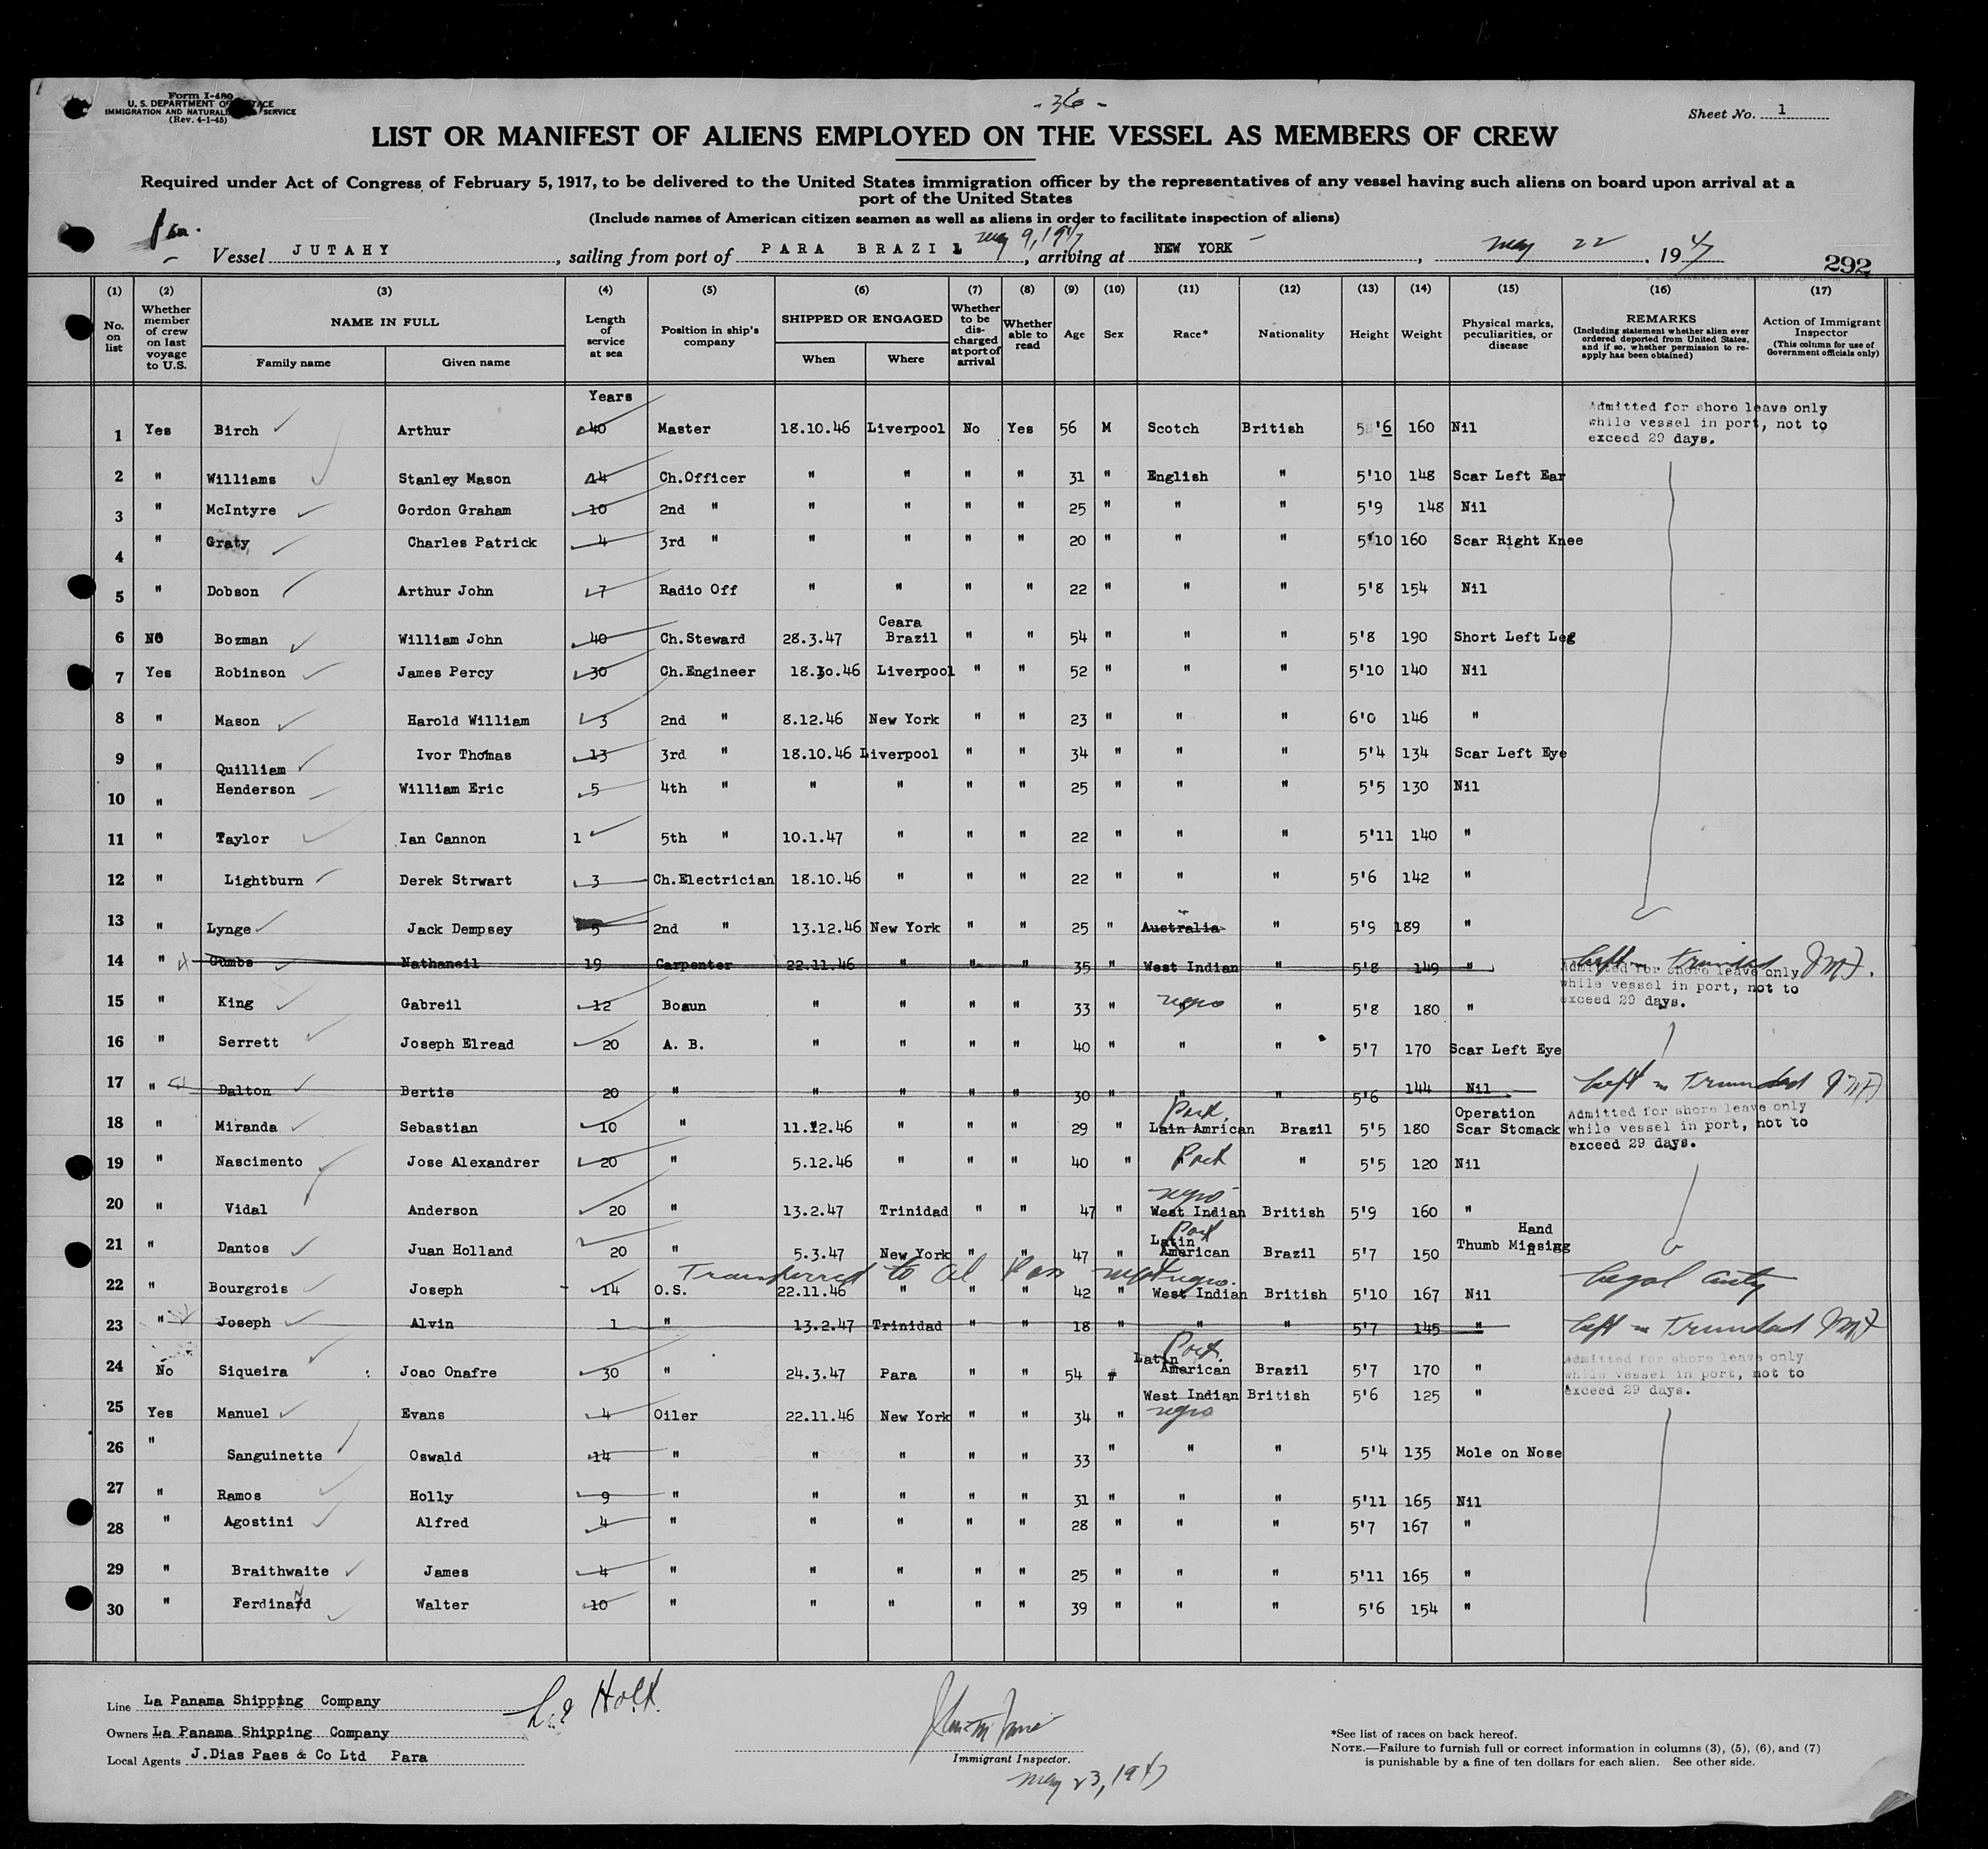 Form I-480
U. S. DEPARTMENT OF JUSTICE
IMMIGRATION AND NATURALIZATION SERVICE
(Rev. 4-1-45)
- 36 -
Sheet No. 1
LIST OR MANIFEST OF ALIENS EMPLOYED ON THE VESSEL AS MEMBERS OF CREW
Required under Act of Congress of February 5, 1917, to be delivered to the United States immigration officer by the representatives of any vessel having such aliens on board upon arrival at a
port of the United States
(Include names of American citizen seamen as well as aliens in order to facilitate inspection of aliens)
Vessel JUTAHY, sailing from port of PARA BRAZIL May 9, 1947, arriving at NEW YORK, May 22, 1947
292
(1) (2) (3) (4) (5) (6) (7) (8) (9) (10) (11) (12) (13) (14) (15) (16) (17)
No. on list | Whether member of crew on last voyage to U.S. | NAME IN FULL Family name Given name | Length of service at sea | Position in ship's company | SHIPPED OR ENGAGED When Where | Whether to be discharged at port of arrival | Whether able to read | Age | Sex | Race* | Nationality | Height | Weight | Physical marks, peculiarities, or disease | REMARKS (Including statement whether alien ever ordered deported from United States, and if so, whether permission to reapply has been obtained) | Action of Immigrant Inspector (This column for use of Government officials only)
Years
1 Yes Birch Arthur 40 Master 18.10.46 Liverpool No Yes 56 M Scotch British 5'6 160 Nil Admitted for shore leave only while vessel in port, not to exceed 29 days.
2 " Williams Stanley Mason 14 Ch.Officer " " " " 31 " English " 5'10 148 Scar Left Ear
3 " McIntyre Gordon Graham 10 2nd " " " " " 25 " " " 5'9 148 Nil
4 " Graty Charles Patrick 4 3rd " " " " " 20 " " " 5'10 160 Scar Right Knee
5 " Dobson Arthur John 7 Radio Off " " " " 22 " " " 5'8 154 Nil
6 NO Bozman William John 40 Ch.Steward 28.3.47 Ceara Brazil " " 54 " " " 5'8 190 Short Left Leg
7 Yes Robinson James Percy 30 Ch.Engineer 18.10.46 Liverpool " " 52 " " " 5'10 140 Nil
8 " Mason Harold William 3 2nd " 8.12.46 New York " " 23 " " " 6'0 146 "
9 " Quilliam Ivor Thomas 13 3rd " 18.10.46 Liverpool " " 34 " " " 5'4 134 Scar Left Eye
10 " Henderson William Eric 5 4th " " " " " 25 " " " 5'5 130 Nil
11 " Taylor Ian Cannon 1 5th " 10.1.47 " " " 22 " " " 5'11 140 "
12 " Lightburn Derek Strwart 3 Ch.Electrician 18.10.46 " " " 22 " " " 5'6 142 "
13 " Lynge Jack Dempsey 5 2nd " 13.12.46 New York " " 25 " Australia " 5'9 189 "
14 " Gumbs Nathaneil 19 Carpenter 22.11.46 " " " 35 " West Indian " 5'8 149 " Left in Trinidad
15 " King Gabreil 12 Bosun " " " " 33 " negro " 5'8 180 " Admitted for shore leave only while vessel in port, not to exceed 29 days.
16 " Serrett Joseph Elread 20 A. B. " " " " 40 " " " 5'7 170 Scar Left Eye
17 " Dalton Bertie 20 " " " " " 30 " " " 5'6 144 Nil Left in Trinidad
18 " Miranda Sebastian 10 " 11.12.46 " " " 29 " Port. Lain Amrican Brazil 5'5 180 Operation Scar Stomack Admitted for shore leave only while vessel in port, not to exceed 29 days.
19 " Nascimento Jose Alexandrer 20 " 5.12.46 " " " 40 " Port " 5'5 120 Nil
20 " Vidal Anderson 20 " 13.2.47 Trinidad " " 47 " negro West Indian British 5'9 160 "
21 " Dantos Juan Holland 20 " 5.3.47 New York " " 47 " Port Latin American Brazil 5'7 150 Hand Thumb Missing
Transferred to
22 " Bourgrois Joseph 14 O.S. 22.11.46 " " " 42 " negro. West Indian British 5'10 167 Nil Legal Entry
23 " Joseph Alvin 1 " 13.2.47 Trinidad " " 18 " " " 5'7 145 " Left in Trinidad
24 No Siqueira Joao Onafre 30 " 24.3.47 Para " " 54 " Port. Latin American Brazil 5'7 170 " Admitted for shore leave only while vessel in port, not to exceed 29 days.
25 Yes Manuel Evans 4 Oiler 22.11.46 New York " " 34 " West Indian negro British 5'6 125 "
26 " Sanguinette Oswald 14 " " " " " 33 " " " 5'4 135 Mole on Nose
27 " Ramos Holly 9 " " " " " 31 " " " 5'11 165 Nil
28 " Agostini Alfred 4 " " " " " 28 " " " 5'7 167 "
29 " Braithwaite James 4 " " " " " 25 " " " 5'11 165 "
30 " Ferdinand Walter 10 " " " " " 39 " " " 5'6 154 "
Line La Panama Shipping Company
Owners La Panama Shipping Company
Local Agents J.Dias Paes & Co Ltd Para
Immigrant Inspector.
May 23, 1947
*See list of races on back hereof.
NOTE.—Failure to furnish full or correct information in columns (3), (5), (6), and (7)
is punishable by a fine of ten dollars for each alien. See other side.